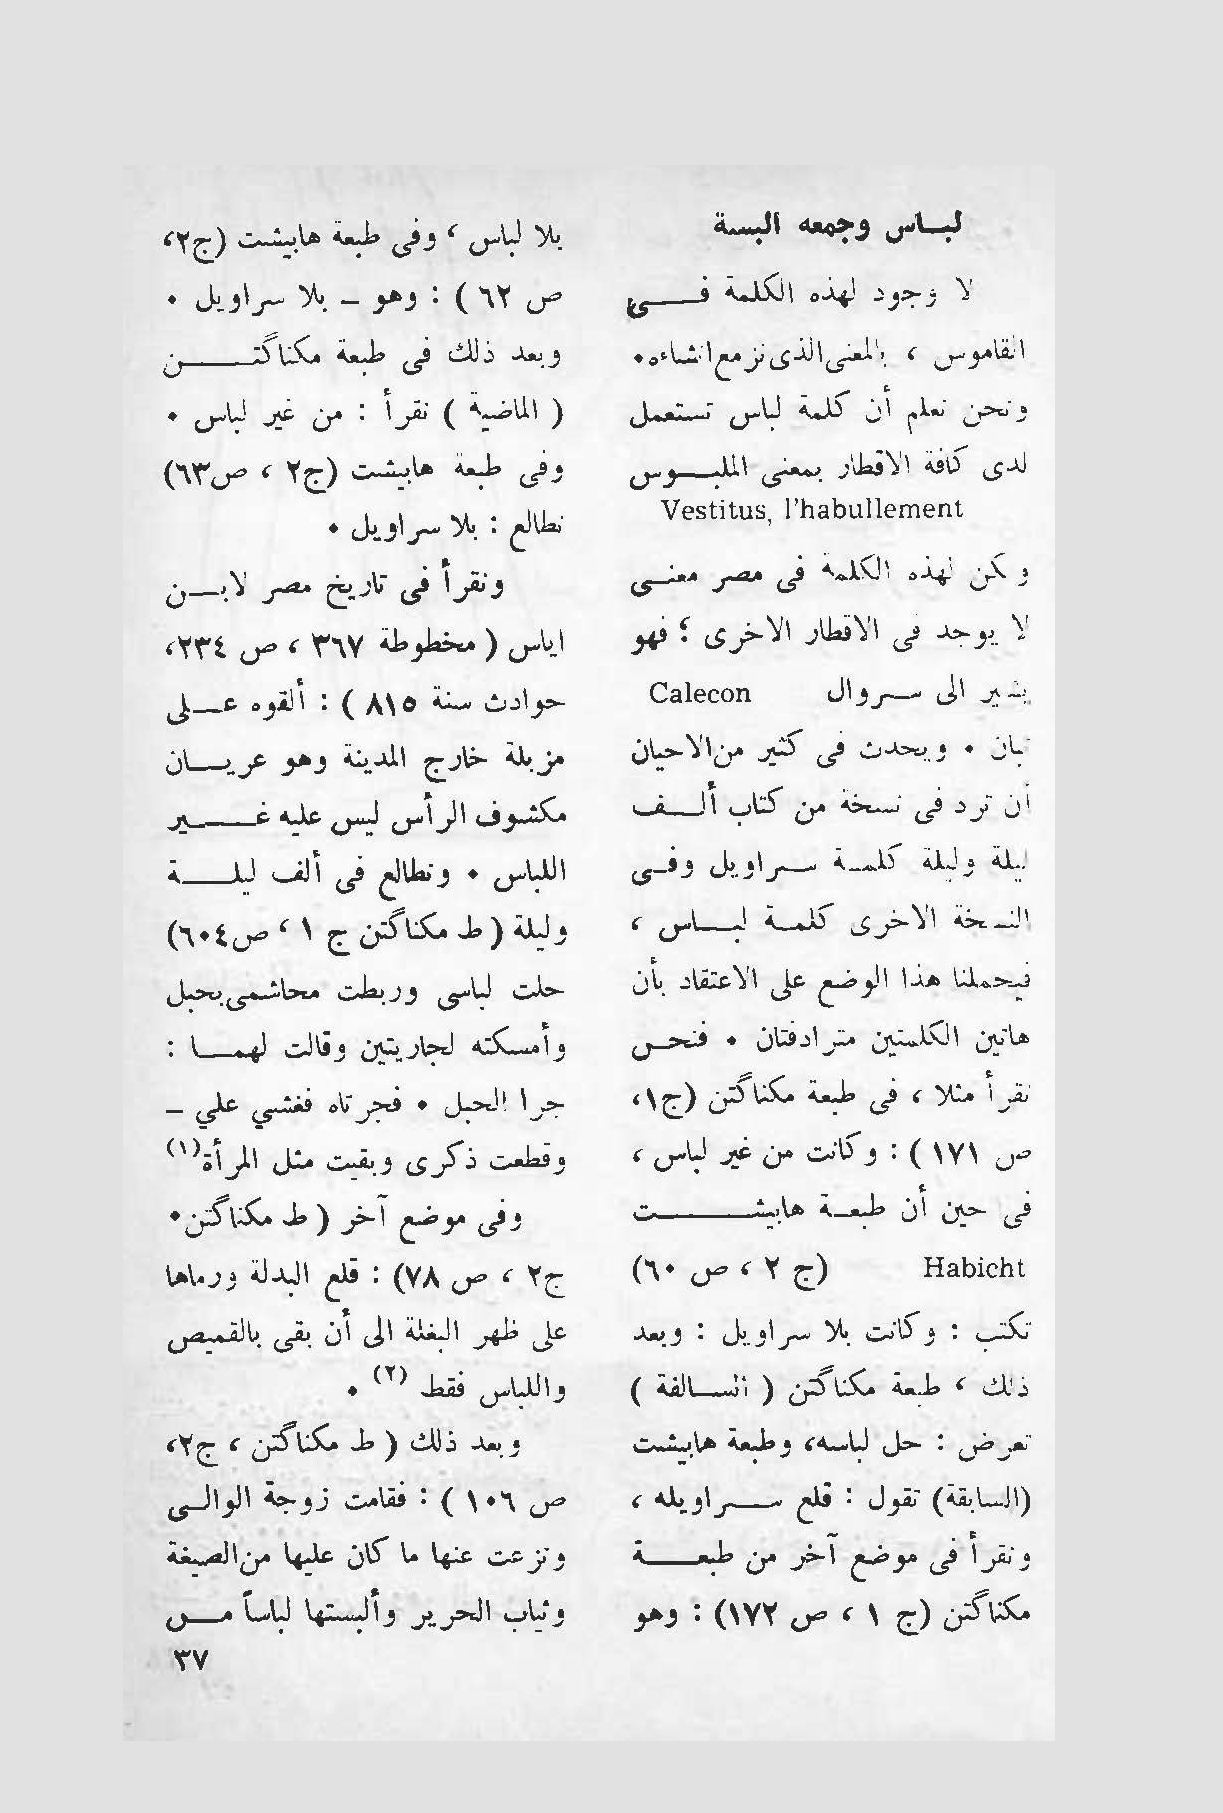 لبـاس وجمعه البسة
لا وجود لهذه الكلمة فــي
القاموس ، بالمعنى الذى نزمع انشاءه٠
ونحن نعلم أن كلمة لباس تستعمل
لدى كافة الاقطار بمعنى الملبـوس
Vestitus, l'habullement
ولكن لهذه الكلمة فى مصر معنـى
لا يوجد فى الاقطار الاخرى ؛ فهو
يشير الى سـروال Calecon
تبان ٠ ويحدث فى كثير من الاحيان
أن ترد فى نسخة من كتاب ألـف
ليلة وليلة كلمـة سـراويل وفـى
النسخة الاخرى كلمـة لبـاس ،
فيحملنا هذا الوضع على الاعتقاد بأن
هاتين الكلمتين مترادفتان ٠ فنحـن
نقرأ مثلا ، فى طبعة مكناگتن (ج١،
ص ١٧١ ) : وكانت من غير لباس ،
فى حين أن طبعـة هابيشــت
Habicht (ج ٢ ، ص ٦٠)
تكتب : وكانت بلا سراويل : وبعد
ذلك ، طبعة مكناگتن ( السـالفة )
تعرض : حل لباسه، وطبعة هابيشت
(السابقة) تقول : قلع سـراويله ،
ونقرأ فى موضع آخر من طبعــة
مكناگتن (ج ١ ، ص ١٧٢) : وهو
بلا لباس ، وفى طبعة هابيشت (ج٢،
ص ٦٢ ) : وهو ـ بلا سراويل ٠
وبعد ذلك فى طبعة مكناگتــن
( الماضية ) نقرأ : من غير لباس ٠
وفى طبعة هابيشت (ج٢ ، ص٦٣)
نطالع : بلا سراويل ٠
ونقرأ فى تاريخ مصر لابـن
اياس ( مخطوطة ٣٦٧ ، ص ٢٣٤،
حوادث سنة ٨١٥ ) : ألقوه عـلى
مزبلة خارج المدينة وهو عريـان
مكشوف الرأس ليس عليه غــير
اللباس ٠ ونطالع فى ألف ليلــة
وليلة ( ط مكناگتن ج ١ ، ص٦٠٤)
حلت لباسى وربطت محاشمى بحبل
وأمسكته لجاريتين وقالت لهمـا :
جرا الحبل ٠ فجرتاه فغشي علي ـ
وقطعت ذكرى وبقيت مثل المرأة(١)
وفى موضع آخر ( ط مكناگتن٠
ج٢ ، ص ٧٨) : قلع البدلة ورماها
على ظهر البغلة الى أن بقى بالقميص
واللباس فقط (٢) ٠
وبعد ذلك ( ط مكناگتن ، ج٢،
ص ١٠٦ ) : فقامت زوجة الوالـى
ونزعت عنها ما كان عليها من الصيغة
وثياب الحرير وألبستها لباساً مـن
٣٧